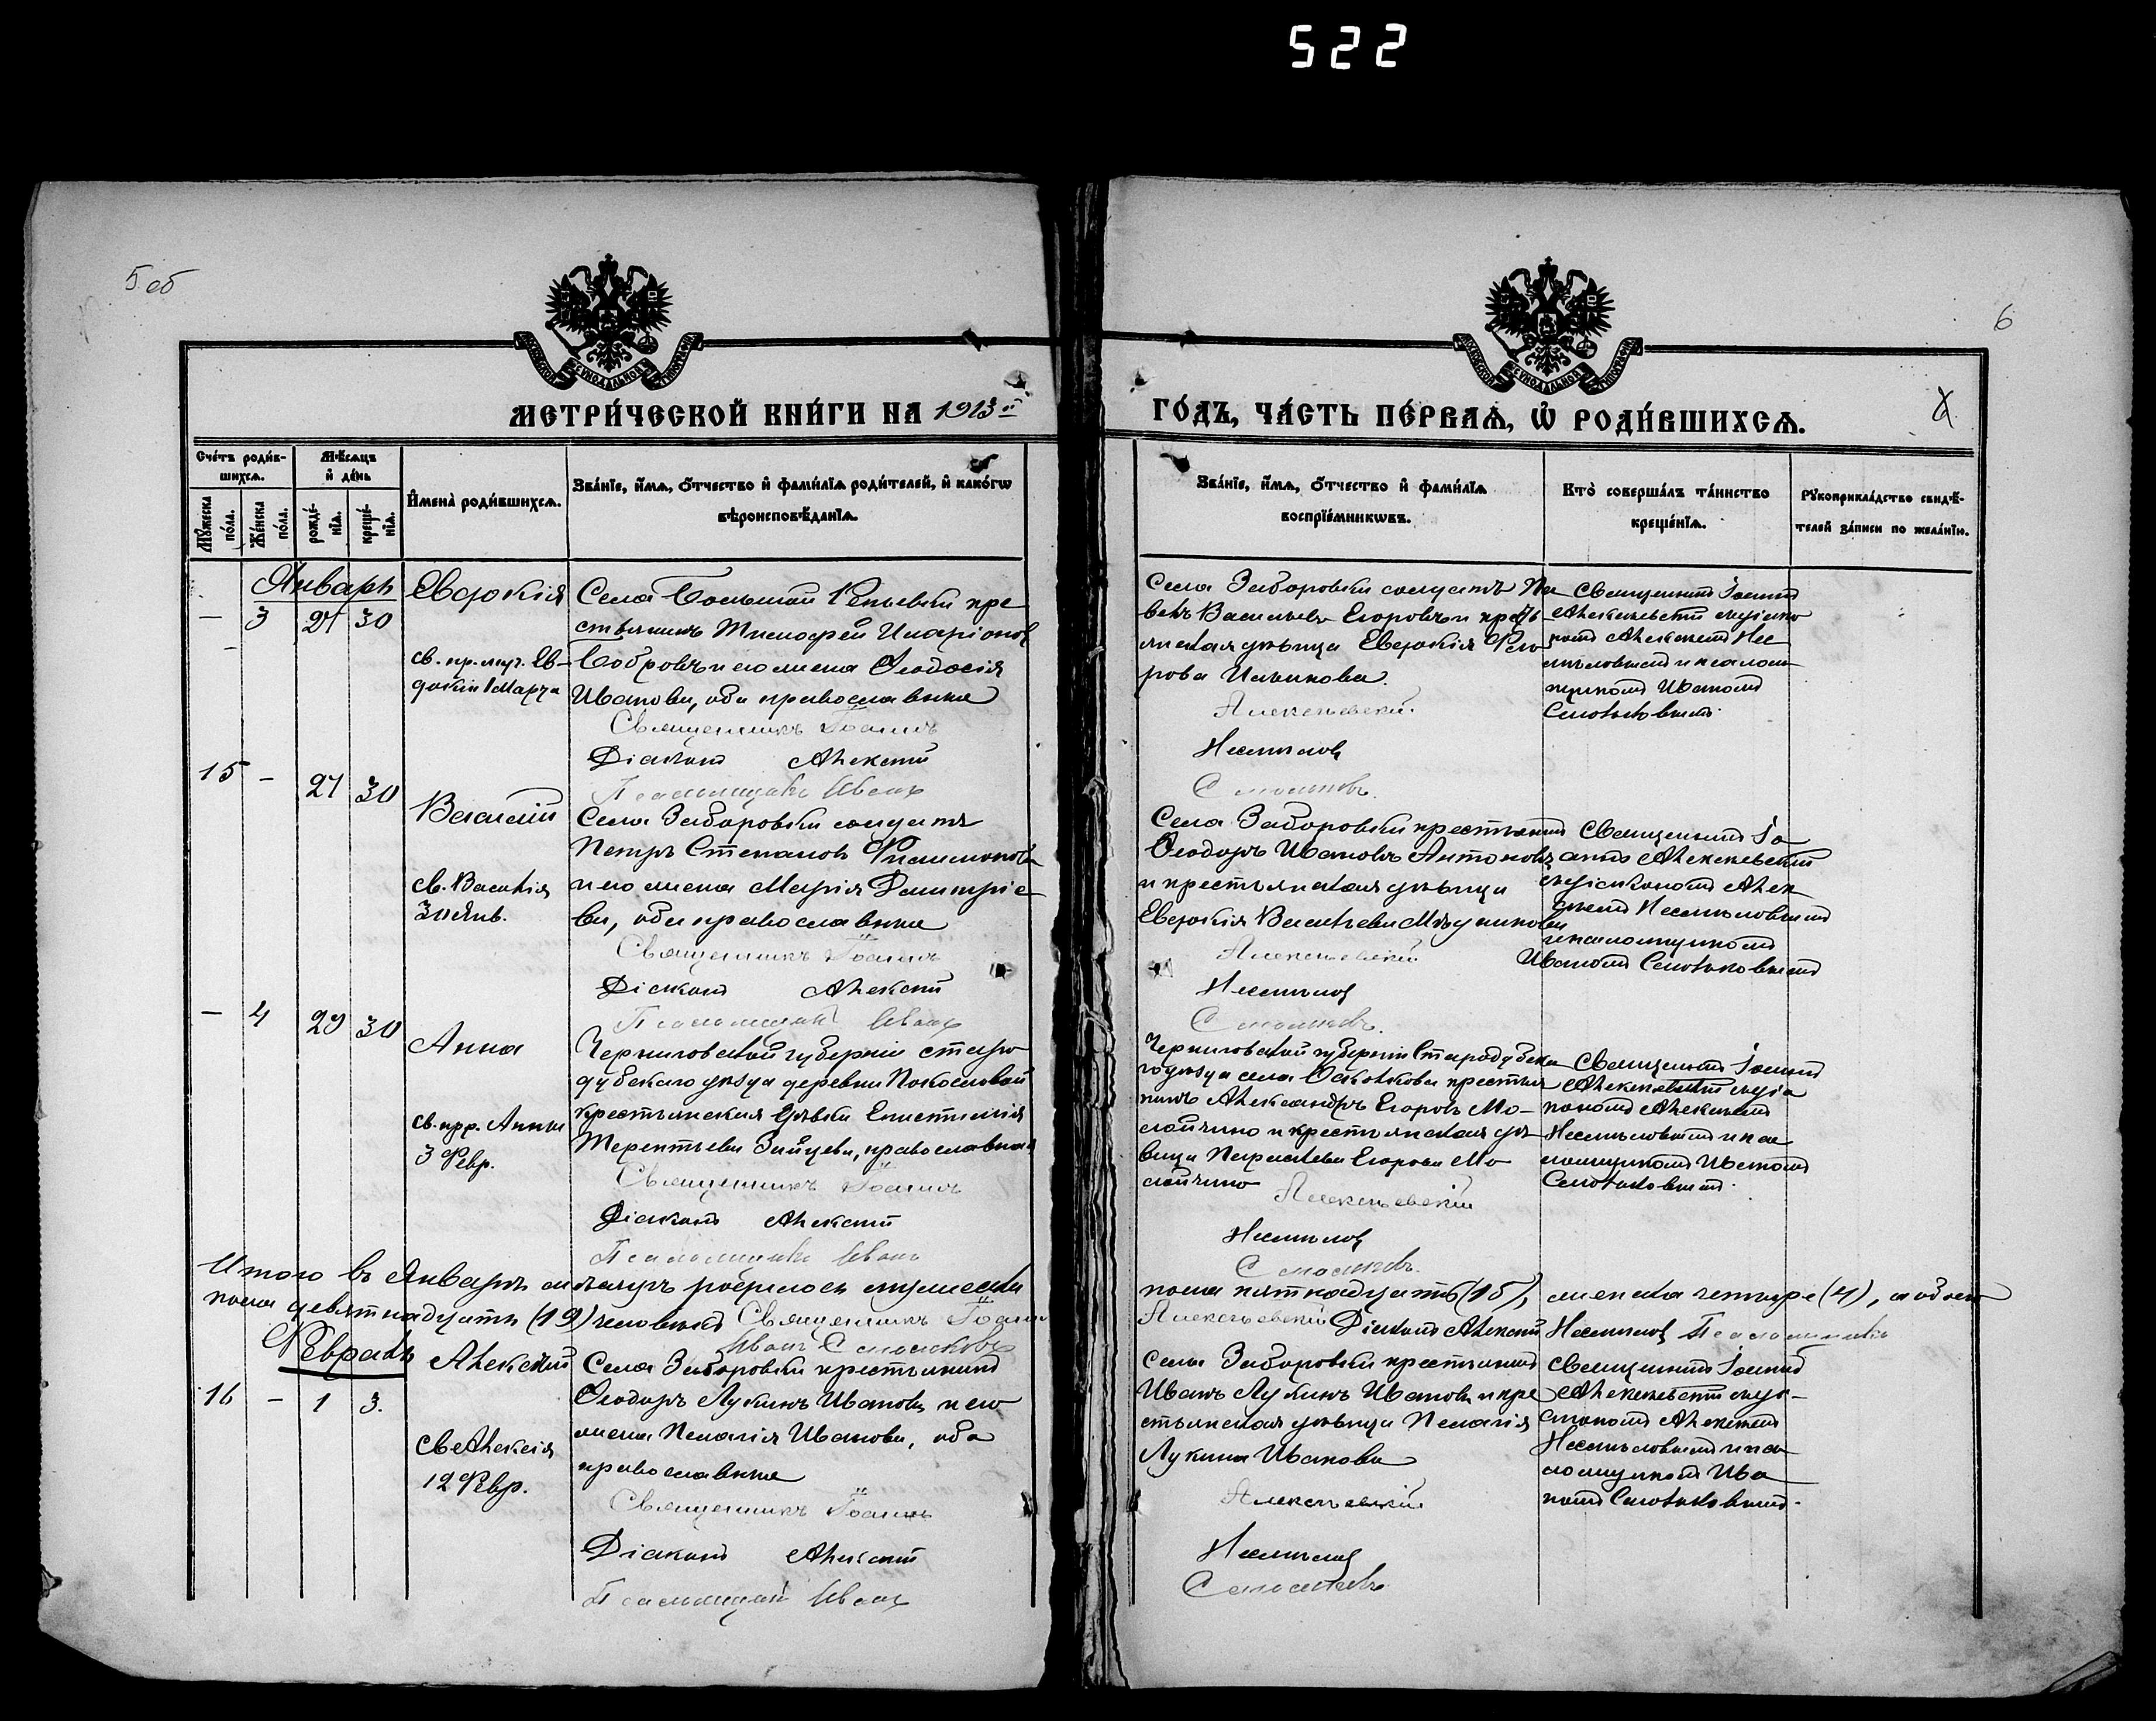 522
5 об
6
МЕТРИ́ЧЕСКОЙ КНИ́ГИ НА 1913 й
ГО́ДЪ, ЧА́СТЬ ПЕ́РВАѦ, Ѽ РОДИ́ВШИХСѦ.
6
Сче́тъ роди́в-
шихсѧ.
Мѣ́сѧцъ
и҆ де́нь
Мꙋ́жеска по́ла.
Же́нска по́ла.
рожде́-нїѧ.
креще́-нїѧ.
И҆мена̀ роди́вшихсѧ.
Зва́нїе, и҆́мѧ, ѻ҆́тчество и҆ фами́лїѧ роди́телей, и҆ како́гѡ
вѣроисповѣ́данїѧ.
Зва́нїе, и҆́мѧ, ѻ҆́тчество и҆ фами́лїѧ
воспрїе́мникѡвъ.
Кто̀ соверша́лъ та́инство
креще́нїѧ.
Рꙋкоприкла́дство свидѣ́-
телей за́писи по жела́нїю.
Январь
— 3 27 30
Евдокія
св. пр. муч. Ев-
докіи 1 Марта
Села Большой Репьевки кре
стьянинъ Тимофей Иларіоновъ
Бобровъ и его жена Ѳеодосія
Иванова, оба православные
Священникъ Іоаннъ
Діаконъ Алексій
Псаломщикъ Иванъ
Села Заборовки солдатъ Па
велъ Васильевъ Егоровъ и кресть
янская дѣвица Евдокія Ѳедо
рова
Алексѣевскій
Несмѣловъ
Смольковъ.
Священникъ Іоаннъ
Алексѣевскій съ діако
номъ Алексіемъ Нес
мѣловымъ и псалом
щикомъ Иваномъ
Смольковымъ.
15 — 27 30
Василій
св. Василія
30 Янв.
Села Заборовки солдатъ
Петръ Степановъ Филимоновъ
и его жена Марія Димитріе
ва, оба православные
Священникъ Іоаннъ
Діаконъ Алексій
Псаломщикъ Иванъ
Села Заборовки крестьянинъ
Ѳеодоръ Ивановъ Антоновъ
и крестьянская дѣвица
Евдокія Васильева
Алексѣевскій
Несмѣловъ
Смольковъ.
Священникъ Іо
аннъ Алексѣевскій
съ діакономъ Алек
сіемъ Несмѣловымъ
и псаломщикомъ
Иваномъ Смольковымъ
— 4 29 30
Анна
св. прр. Анны
3 Февр.
Черниговской губерніи Старо
дубскаго уѣзда деревни
крестьянская дѣвка Епистимія
Терентьева Зайцева, православная
Священникъ Іоаннъ
Діаконъ Алексій
Псаломщикъ Иванъ
Черниговской губерніи Стародубска
го уѣзда села крестья
нинъ Александръ Егоровъ Мо-
лойчино и крестьянская дѣ
вица Параскева Егорова Мо
лойчино
Алексѣевскій
Несмѣловъ
Смольковъ.
Священникъ Іоаннъ
Алексѣевскій съ діа
кономъ Алексіемъ
Несмѣловымъ и пса
ломщикомъ Иваномъ
Смольковымъ.
Итого въ Январѣ мѣсяцѣ родилось мужеска
пола пятнадцать (15), женска четыре (4), а обоего
пола девятнадцать (19) человѣкъ Священникъ Іоаннъ
Алексѣевскій Діаконъ Алексій Несмѣловъ Псаломщикъ
Иванъ Смольковъ
Февраль
16 — 1 3.
Алексій
св Алексія
12 Февр.
Села Заборовки крестьянинъ
Ѳеодоръ Лукинъ Ивановъ и его
жена Пелагія Иванова, оба
православные
Священникъ Іоаннъ
Діаконъ Алексій
Псаломщикъ Иванъ
Села Заборовки крестьянинъ
Иванъ Лукинъ Ивановъ и кре
стьянская дѣвица Пелагія
Лукина Иванова
Алексѣевскій
Несмѣловъ
Смольковъ
Священникъ Іоаннъ
Алексѣевскій съ ді-
акономъ Алексіемъ
Несмѣловымъ и пса
ломщикомъ Ива
номъ Смольковымъ.